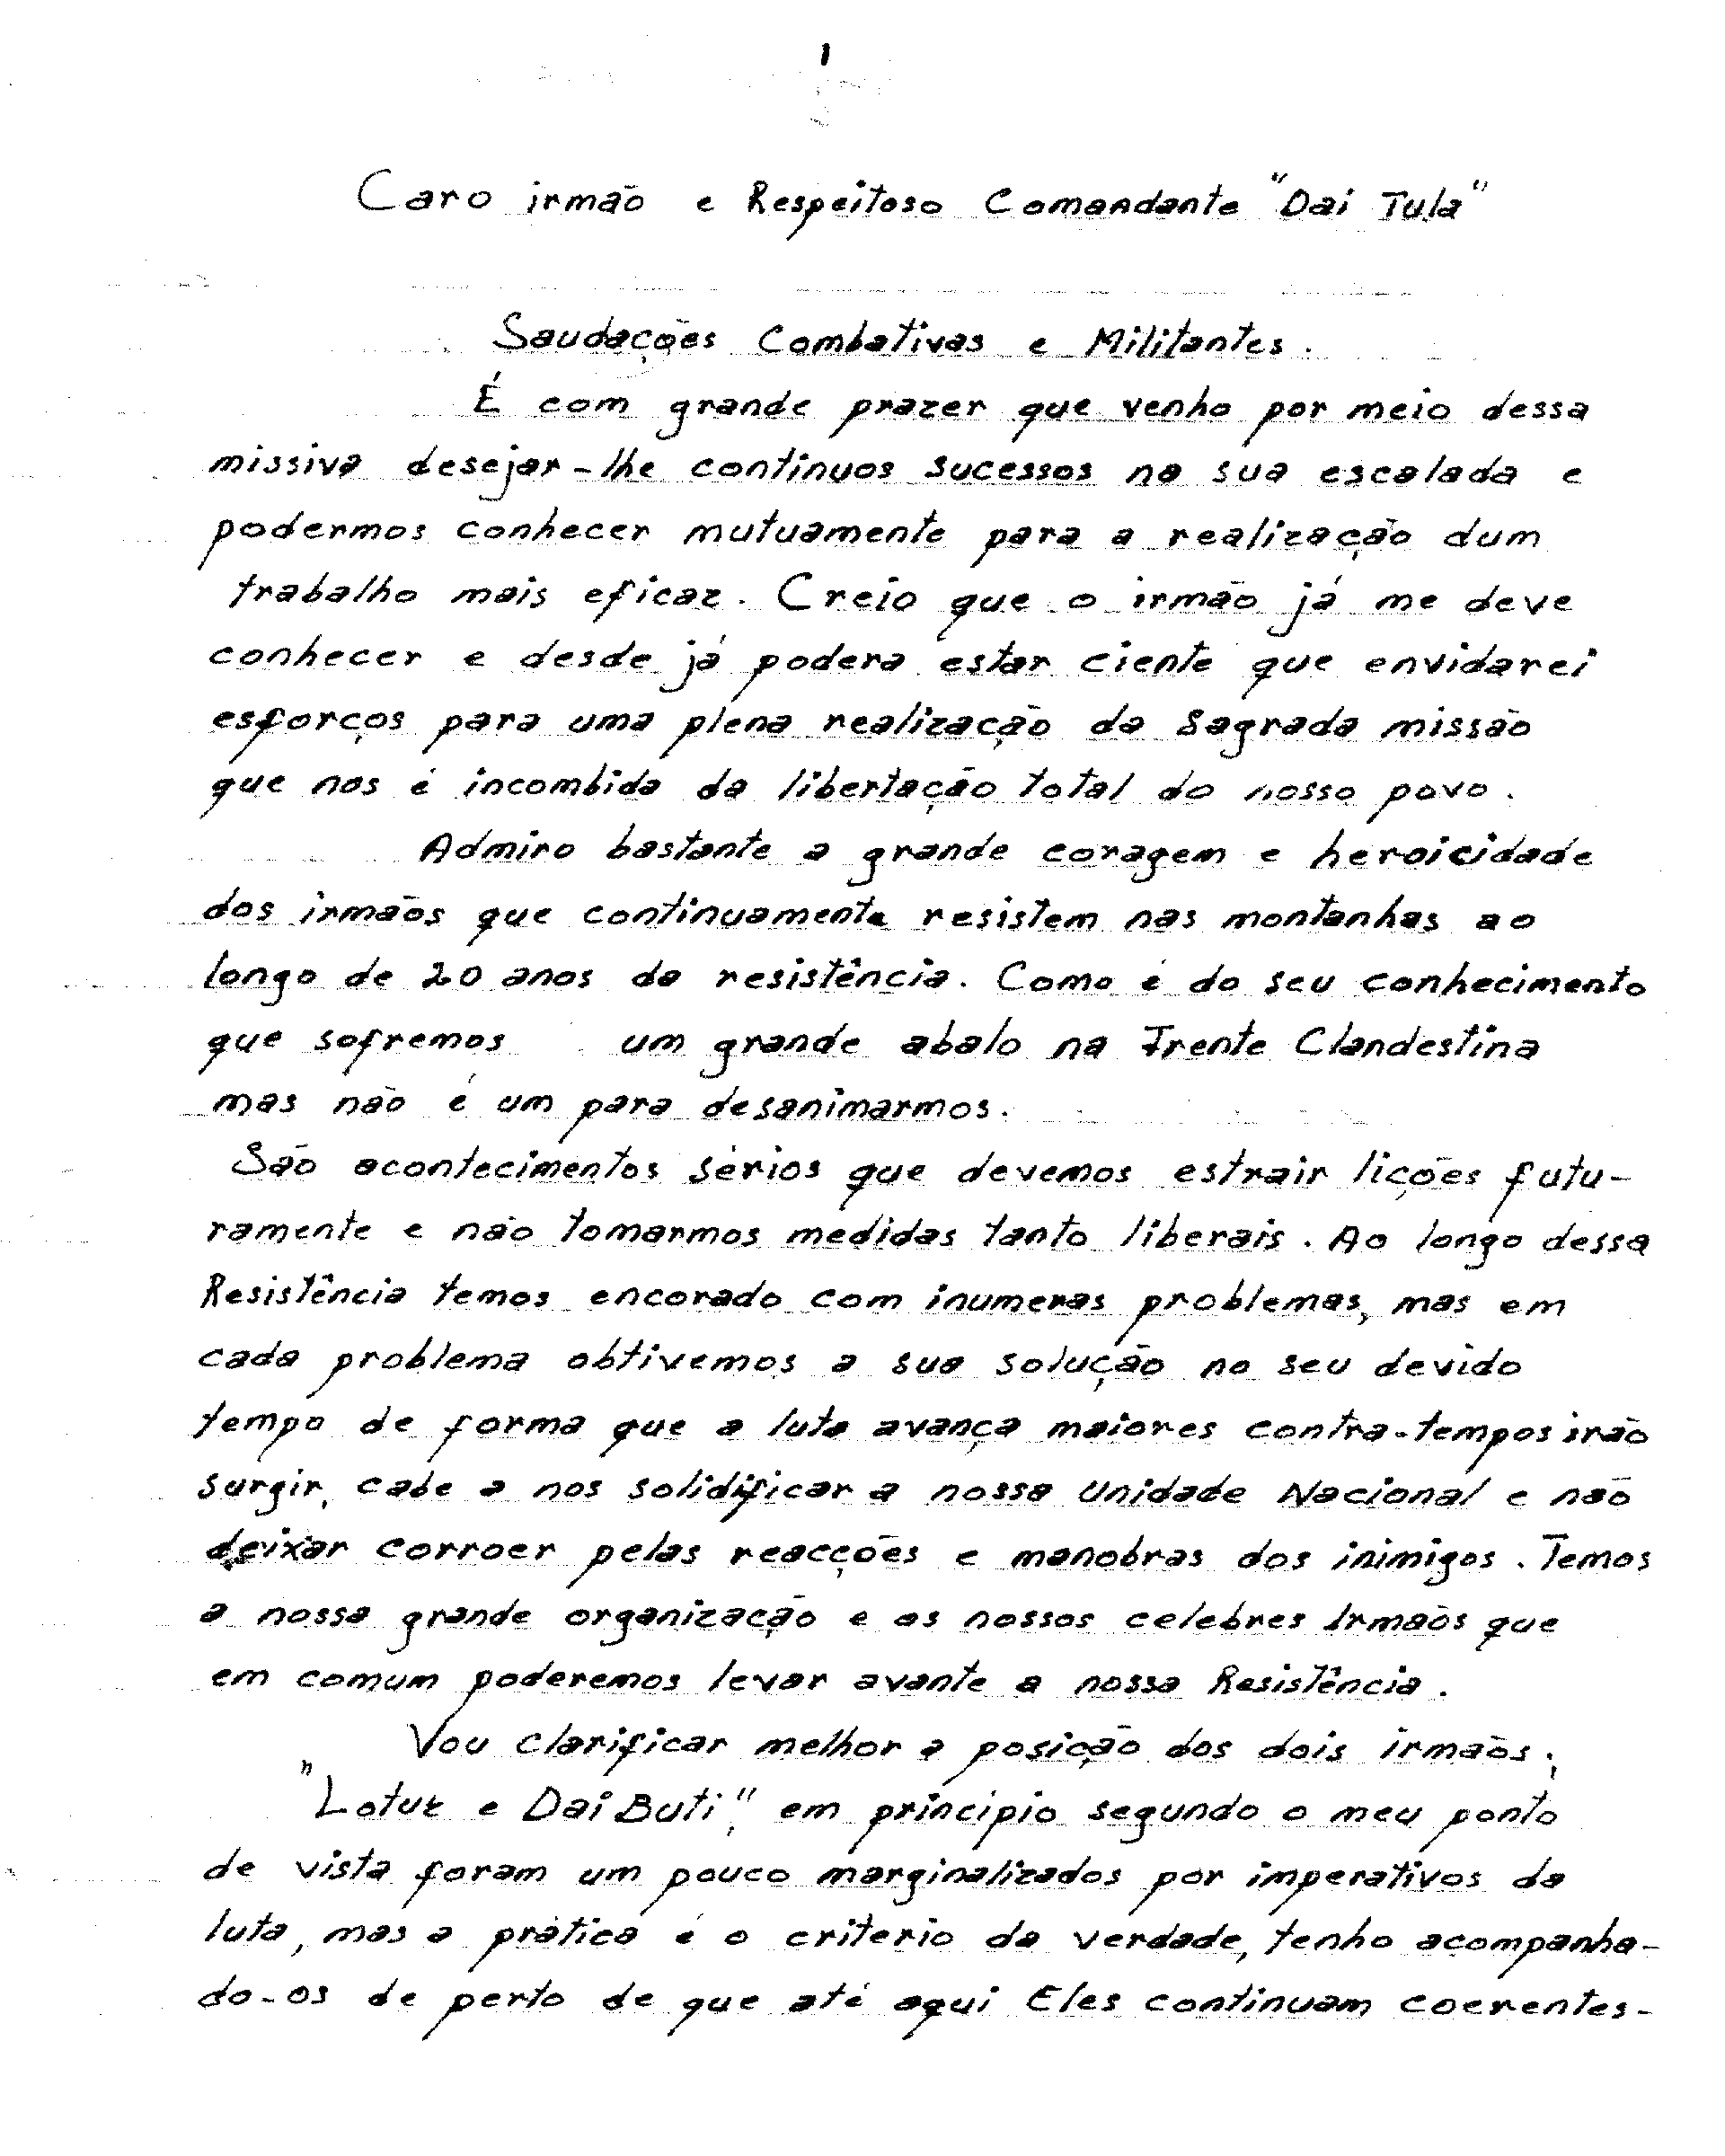 1
Caro irmão e Respeitoso Comandante "Dai Tula"
Saudações Combativas e Militantes.
É com grande prazer que venho por meio dessa
missiva desejar-lhe continuos sucessos na sua escalada e
podermos conhecer mutuamente para a realização dum
trabalho mais eficaz. Creio que o irmão já me deve
conhecer e desde já podera estar ciente que envidarei
esforços para uma plena realização da Sagrada missão
que nos é incombida da libertação total do nosso povo.
Admiro bastante a grande coragem e heroicidade
dos irmãos que continuamente resistem nas montanhas ao
longo de 20 anos da resistência. Como é do seu conhecimento
que sofremos um grande abalo na Frente Clandestina
mas não é um para desanimarmos.
São acontecimentos sérios que devemos estrair lições futu-
ramente e não tomarmos medidas tanto liberais. Ao longo dessa
Resistência temos encorado com inumeras problemas, mas em
cada problema obtivemos a sua solução no seu devido
tempo de forma que a luta avança maiores contra-tempos irão
surgir, cabe a nos solidificar a nossa Unidade Nacional e não
deixar corroer pelas reacções e manobras dos inimigos. Temos
a nossa grande organização e os nossos celebres Irmãos que
em comum poderemos levar avante a nossa Resistência.
Vou clarificar melhor a posição dos dois irmãos;
"Lotuk e Dai Buti", em principio segundo o meu ponto
de vista foram um pouco marginalizados por imperativos da
luta, mas a prática é o criterio da verdade, tenho acompanha-
do-os de perto de que até aqui Eles continuam coerentes-